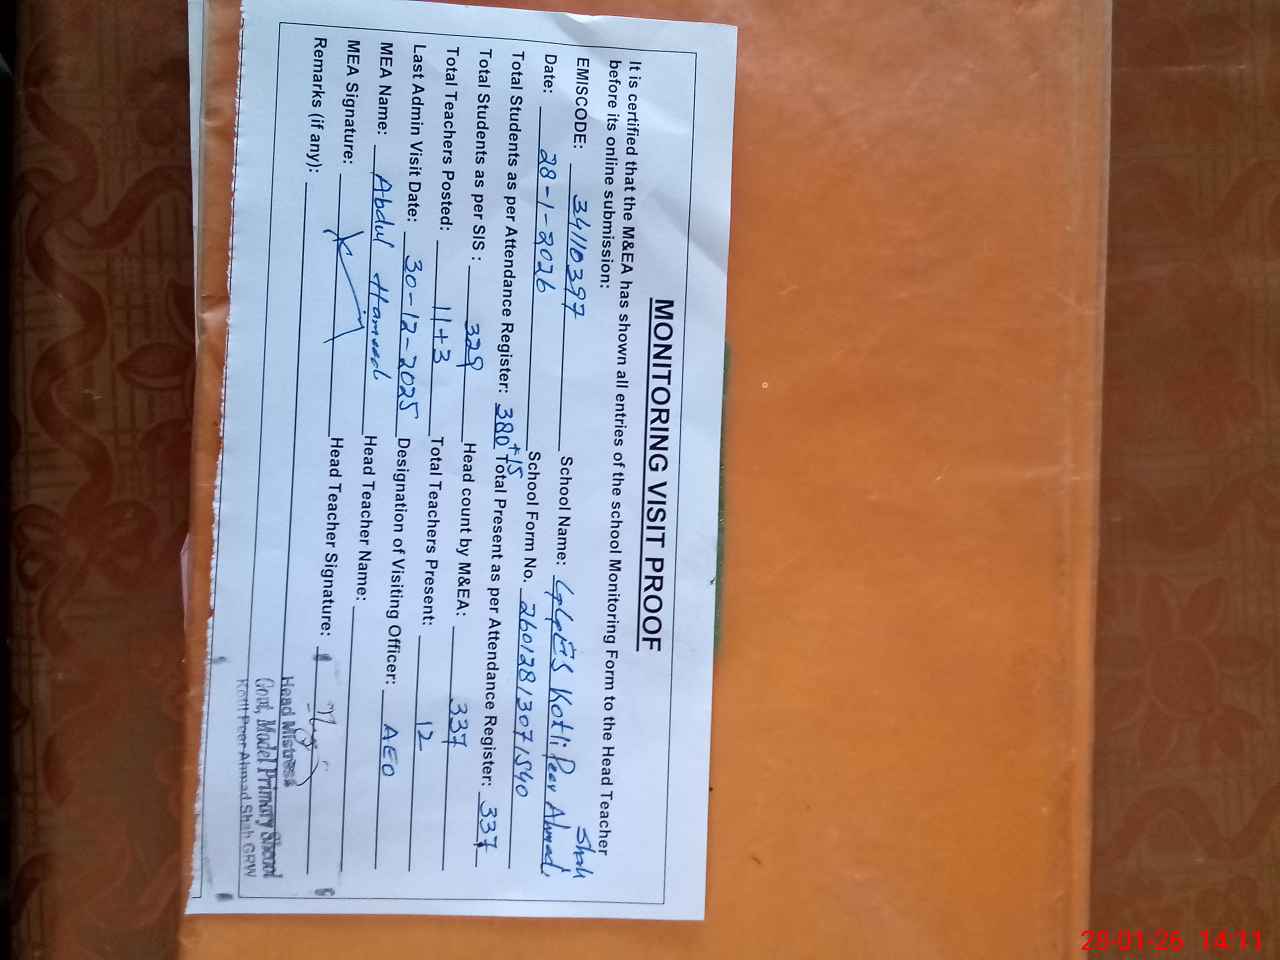 MONITORING VISIT PROOF
It is certified that the M&EA has shown all entries of the school Monitoring Form to the Head Teacher
before its online submission:
EMISCODE: 34110397 School Name: GGPS Kotli Peer Ahmad Shah
Date: 28-1-2026 School Form No. 26012813071540
Total Students as per Attendance Register: 380+15 Total Present as per Attendance Register: 337
Total Students as per SIS : 329 Head count by M&EA: 337
Total Teachers Posted: 11+3 Total Teachers Present: 12
Last Admin Visit Date: 30-12-2025 Designation of Visiting Officer: AEO
MEA Name: Abdul Hameed Head Teacher Name:
MEA Signature: Head Teacher Signature:
Remarks (if any):
Head Mistress
Govt, Model Primary School
Kotli Peer Ahmad Shah GRW
28-01-26 14:11